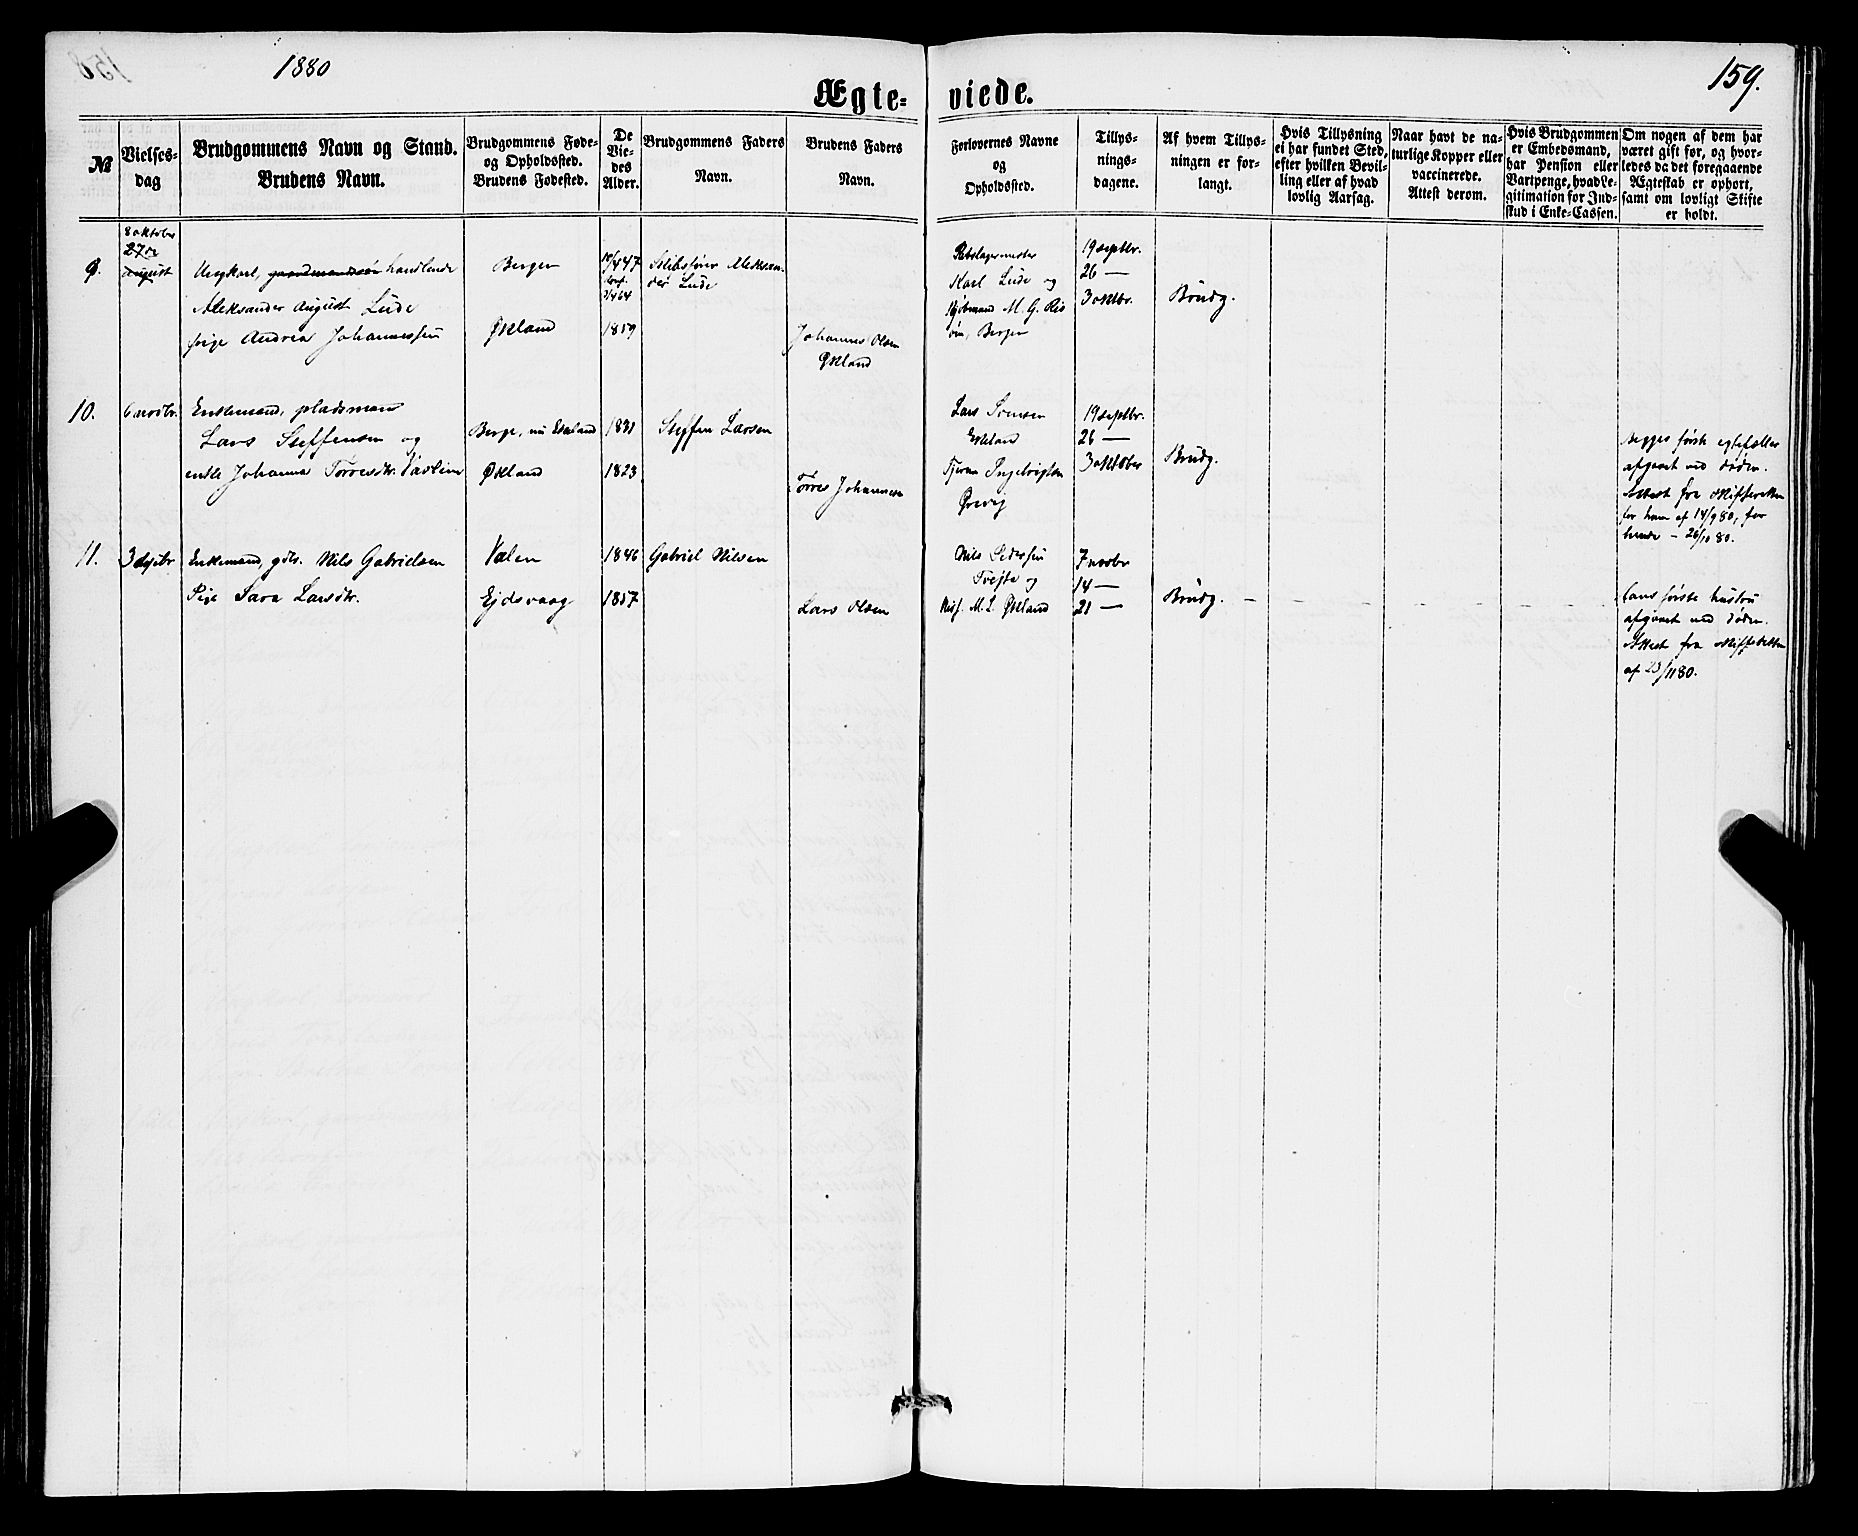 1880
159.
Ægte- viede.
№
Vielses-
dag
Brudgommens Navn og Stand.
Brudens Navn.
Brudgommens Føde-
og Opholdssted.
Brudens Fødested.
De
Vie-
des
Alder.
Brudgommens Faders
Navn.
Brudens Faders
Navn.
Forlovernes Navne
og
Opholdssted.
Tillys-
nings-
dagene.
Af hvem Tillys-
ningen er for-
langt.
Hvis Tillysning
ei har fundet Sted,
efter hvilken Bevil-
ling eller af hvad
lovlig Aarsag.
Naar havt de na-
turlige Kopper eller
vaccinerede.
Attest derom.
Hvis Brudgommen
er Embedsmand,
har Pension eller
Vartpenge, hvad Le-
gitimation for Ind-
skud i Enke-Cassen.
Om nogen af dem har
været gift før, og hvor-
ledes da det foregaaende
Ægteskab er ophørt,
samt om lovligt Skifte
er holdt.
9.
8 oktober
27de
august
Ungkarl, gaardmandssøn handlende
Aleksander August Lude
pige Andrea Johannessen
Bergen
Økland
1859
Aleksan-
der Lude
Johannes Olsen
Økland
Rebslagermester
Karl Lude og
Kjøbmand M. G. Ris
øen, Bergen
19 septbr.
26 —
3 oktbr.
Brudg.
10.
6 novbr.
Enkemand, pladsman
Lars Steffensen og
enke Johanna Tørresdtr.
Berge, nu Eskeland
Økland
1831
1823
Steffen Larsen
Tørres Johannesen
Lars
Eskeland
Ingebrigtsen
19 septbr.
26 —
3 oktober
Brudg.
Begges første egtefæller
afgaaet ved døden.
Attest fra skifteretten
for ham af 14/9 80, for
hende — 26/10 80.
11.
3 desbr.
Enkemand, gdbr. Nils Gabrielsen
Pige Sara Larsdtr.
Valen
Ejdsvaag
1846
1857
Gabriel Nilsen
Lars Olsen
Nils Pedersen
Tvejte og
M. L. Økland
7 novbr
14 —
21 —
Brudg.
hans første hustru
afgaaet ved døden.
Attest fra skifteretten
af 23/11 80.